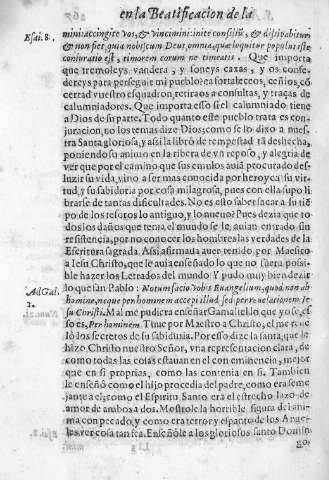 en la Beatificacion de la
Esai. 8.
mini: accingite vos, & vincimini: inite consiliũ, & dissipabitur:
& non fiet, quia nobiscum Deus, omnia, quæ loquitur populus iste
coniuratio est, timorem eorum ne timeatis. Que importa
que tremoleys vandera, y soneys caxas, y os confe-
dereys para perseguir mi pueblo? a fortaleceos, ceñios, cõ
certad vuestro esquadron, retiraos a consultas, y traças de
calumniadores. Que importa esso si el calumniado tiene
a Dios de su parte. Todo quanto este pueblo trata es con-
juracion, no los temas dize Dios; como se lo dixo a nues-
tra Santa gloriosa, y assi la libró de tempestad tã deshecha,
poniendo su animo en la ribera de vn reposo, y alegria de
ver que por el camino que sus emulos auiã procurado des-
luzir su vida, vino a ser mas conocida por heroyca su vir-
tud, y su sabiduria por cosa milagrosa, pues con ella supo li
brarse de tantas dificultades. No es esto saber sacar a su tiẽ
po de los tesoros lo antiguo, y lo nueuo? Pues dezia que to-
dos los daños que tenia el mundo se le auian entrado sin
resistencia, por no conocer los hombres las verdades de la
Escritura sagrada. Assi afirmaua auer tenido por Maestro
a Iesu Christo, que le auia enseñado lo que no fuera possi-
ble hazer los Letrados del mundo. Y pudo muy bien dezir
Ad Gal.
lo que san Pablo: Notum facio vobis Euangelium, quod non ab
homine, neque per hominem accepi illud, sed per reuelationem Ie-
su Christi. Mal me pudiera enseñar Gamaliel lo que yo se, es-
so es, Per hominem. Tuue por Maestro a Christo, el me reue
ló los secretos de su sabiduria. Por esso dize la santa, que le
hizo Christo nuestro Señor, vna representacion clara, de
como todas las cosas estauan en el con eminencia, mejor
que en si proprias, como las contenia en si. Tambien
le enseñó como el hijo procedia del padre, como era seme
jante a el; como el Espiritu Santo era el estrecho lazo de
amor de ambos a dos. Mostrole la horrible figura del ani-
ma con pecado, y como era terror y espanto de los Ange-
les ver cosa tan fea. Enseñole a los gloriosos santo Domin
go,